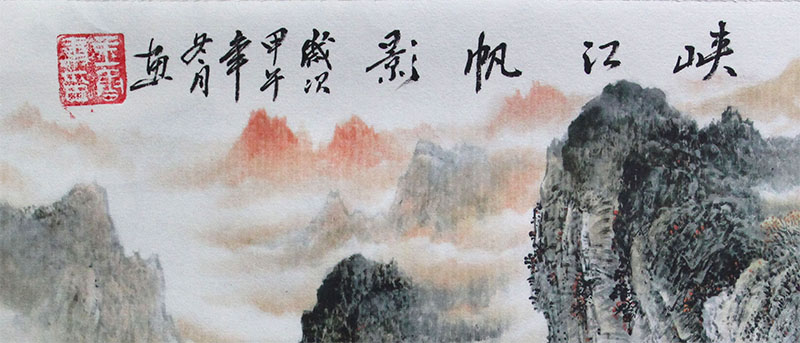 峡江帆影
歲次
甲午
年
月
画